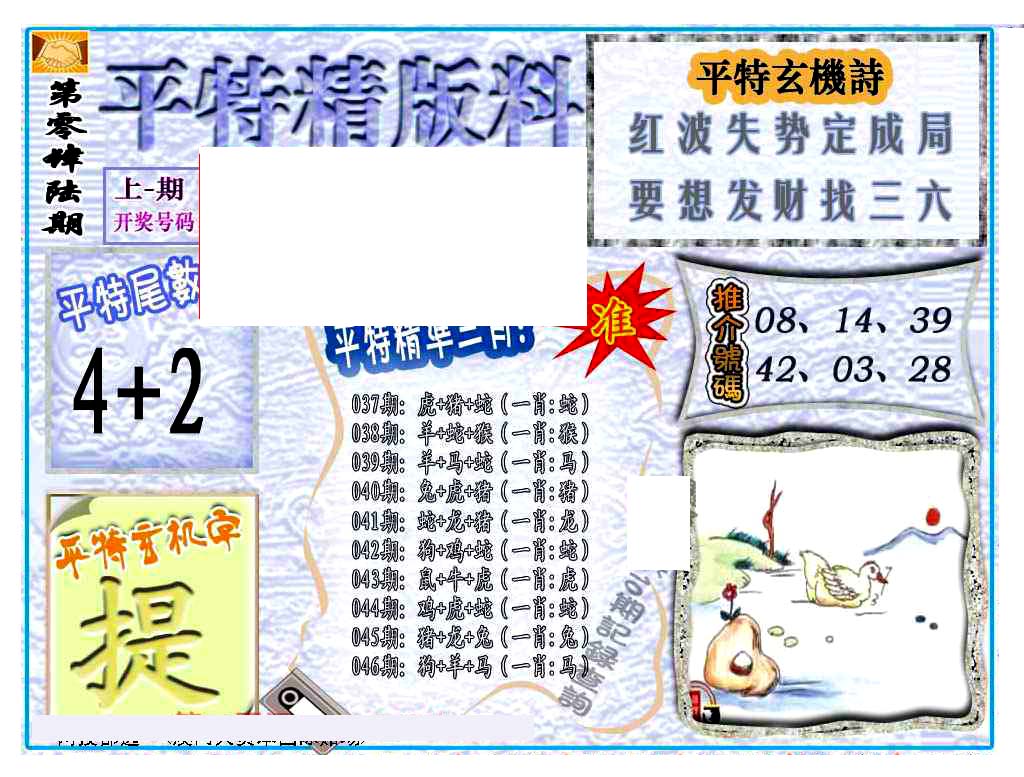 第零肆陆期
平特精版料
上-期
开奖号码
平特玄機詩
红波失势定成局
要想发财找三六
平特尾數
4+2
推介號碼
08、14、39
42、03、28
准
037期: 虎+猪+蛇 (一肖:蛇)
038期: 羊+蛇+猴 (一肖:猴)
039期: 羊+马+蛇 (一肖:马)
040期: 兔+虎+猪 (一肖:猪)
041期: 蛇+龙+猪 (一肖:龙)
042期: 狗+鸡+蛇 (一肖:蛇)
043期: 鼠+牛+虎 (一肖:虎)
044期: 鸡+虎+蛇 (一肖:蛇)
045期: 猪+龙+兔 (一肖:兔)
046期: 狗+羊+马 (一肖:马)
平特玄机字
提
期記録查詢